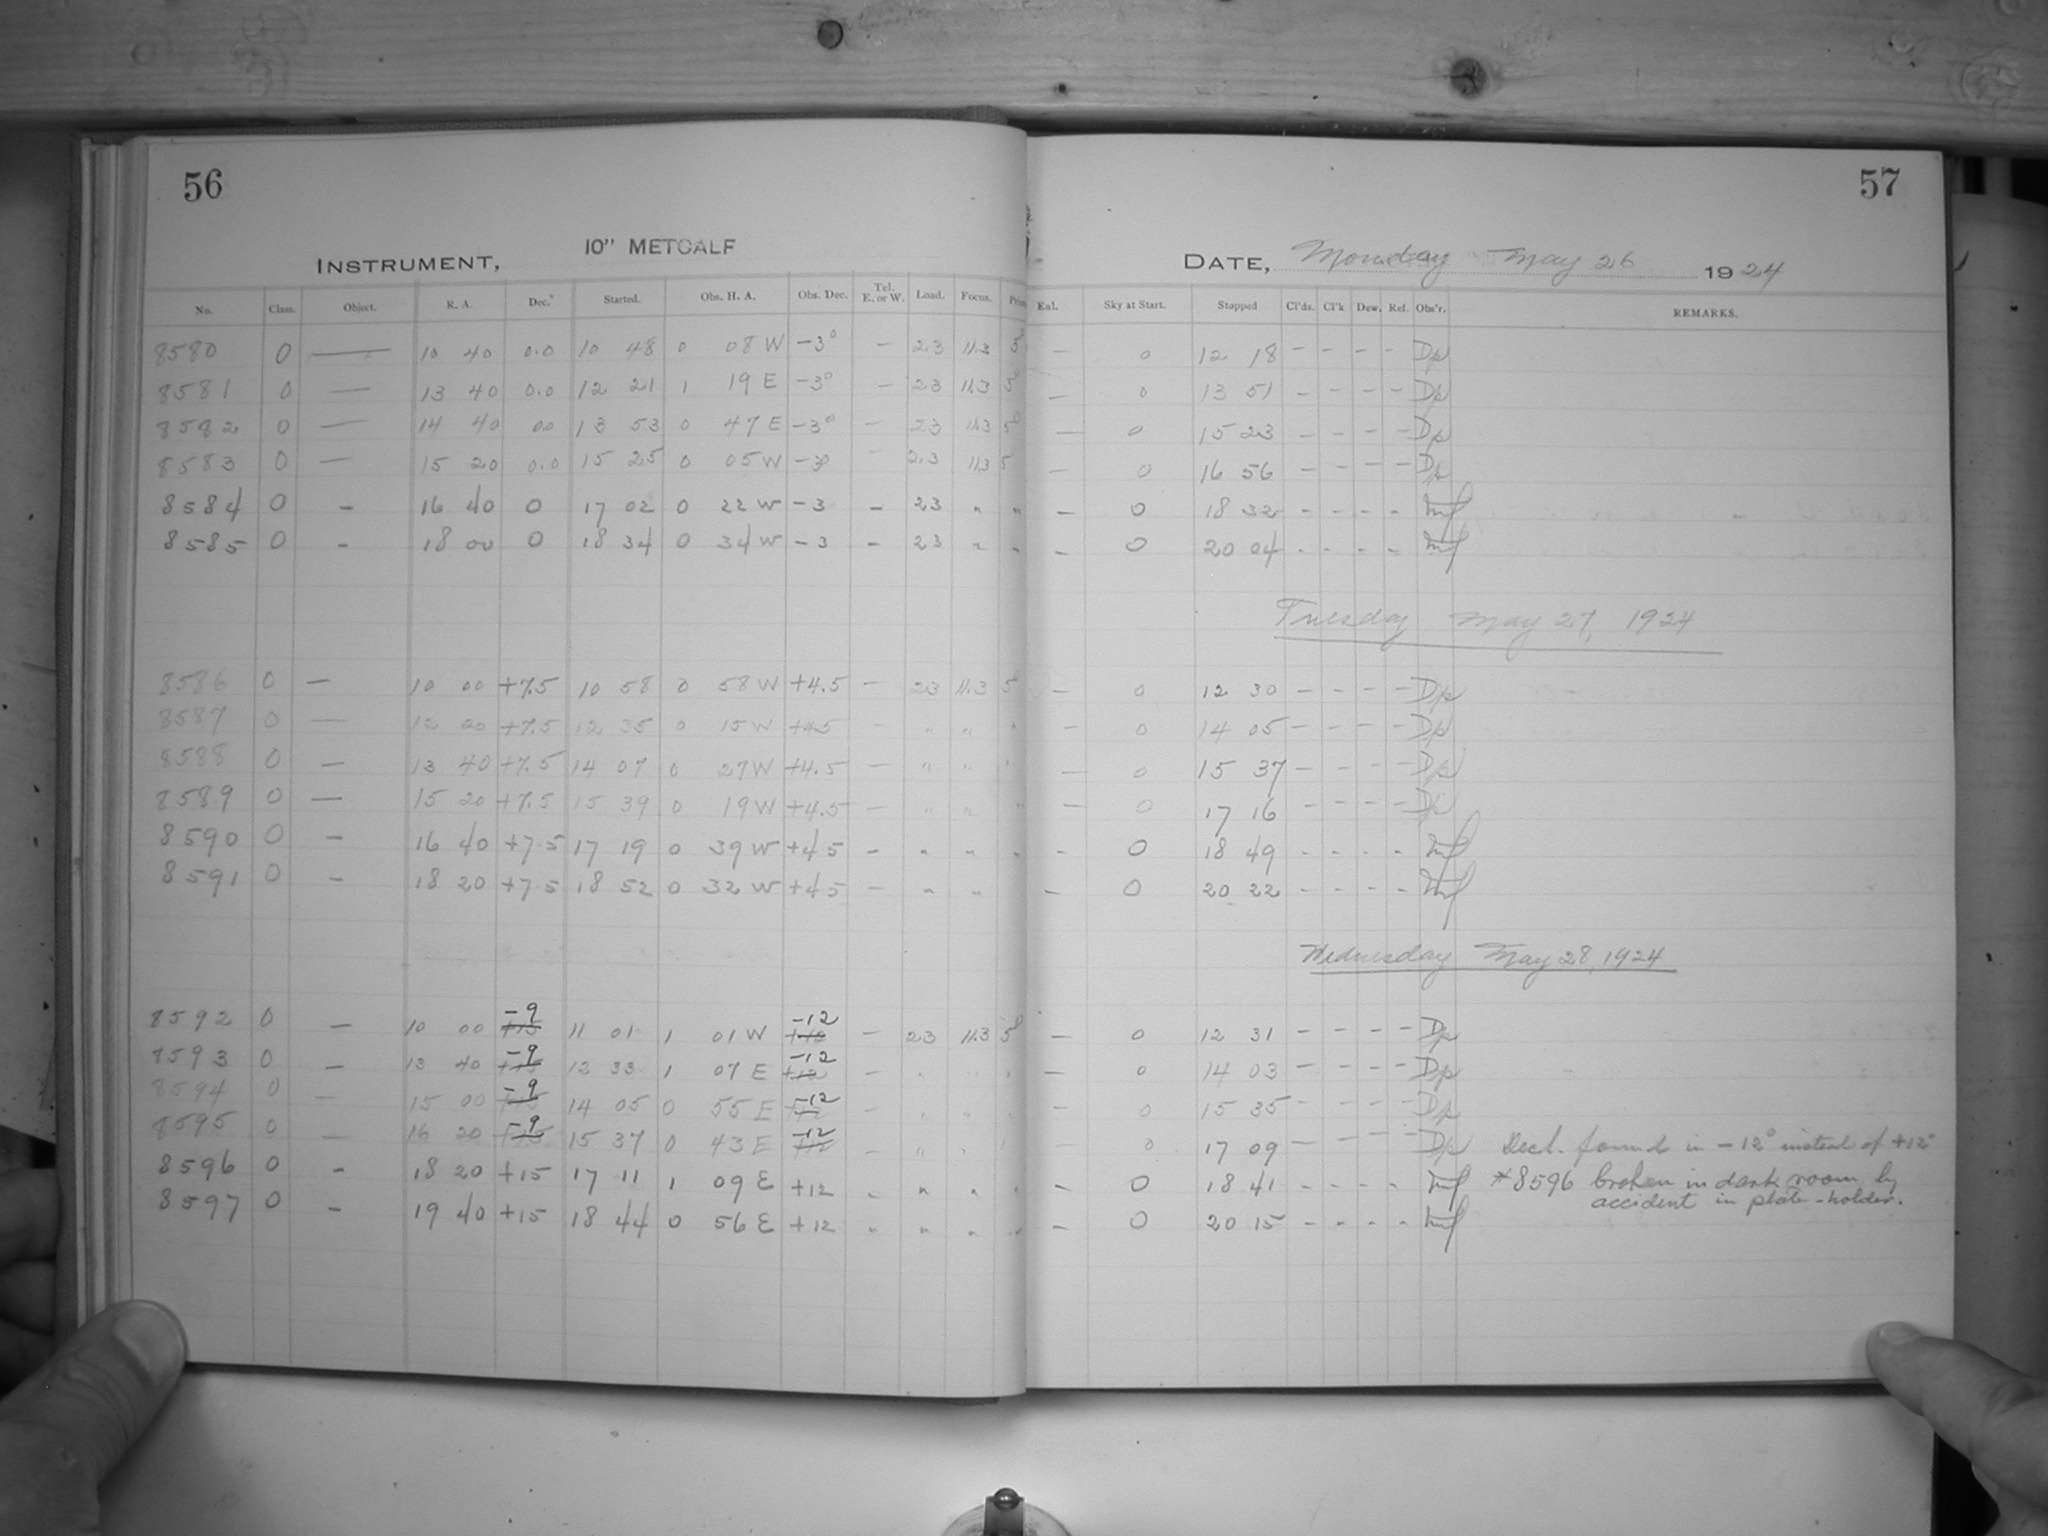 56
57
INSTRUMENT, 10" METCALF
DATE, Monday May 26 1924
No. Class. Object. R. A. Dec. Started. Obs. H. A. Obs. Dec. Tel. E. or W. Load. Focus. Eal. Sky at Start. Stopped Cl'ds. Cl'k Dew. Rel. Obs'r. REMARKS.
8580 0 — 10 40 0.0 10 48 0 08 W -3° — 23 11.3 5 — 0 12 18 — — — — Dp
8581 0 — 13 40 0.0 12 21 1 19 E -3° — 23 11.3 5 — 0 13 51 — — — — Dp
8582 0 — 14 40 00 13 53 0 47 E -3° — 23 11.3 5 — 0 15 23 — — — — Dp
8583 0 — 15 20 0.0 15 25 0 05 W -3° — 23 11.3 5 — 0 16 56 — — — — Dp
8584 0 - 16 40 0 17 02 0 22 W -3 - 23 " " - 0 18 32 - - - -
8585 0 - 18 00 0 18 34 0 34 W -3 - 23 " " - 0 20 04 - - - -
Tuesday May 27, 1924
8586 0 — 10 00 +7.5 10 58 0 58 W +4.5 — 23 11.3 5 — 0 12 30 — — — — Dp
8587 0 — 12 20 +7.5 12 35 0 15 W +4.5 — " " " — 0 14 05 — — — — Dp
8588 0 — 13 40 +7.5 14 07 0 27 W +4.5 — " " " — 0 15 37 — — — — Dp
8589 0 — 15 20 +7.5 15 39 0 19 W +4.5 — " " " — 0 17 16 - - - - Dp
8590 0 - 16 40 +7.5 17 19 0 39 W +4.5 - " " " - 0 18 49 - - - -
8591 0 - 18 20 +7.5 18 52 0 32 W +4.5 - " " - 0 20 22 - - - -
Wednesday May 28, 1924
8592 0 — 10 00 +15 -9 11 01 1 01 W +12 -12 — 23 11.3 5 — 0 12 31 — — — — Dp
8593 0 — 13 40 +15 -9 12 33 1 07 E +12 -12 — " " " — 0 14 03 — — — — Dp
8594 0 — 15 00 +15 -9 14 05 0 55 E +12 -12 — " " " — 0 15 35 — — — — Dp
8595 0 — 16 20 +15 -9 15 37 0 43 E +12 -12 — " " " — 0 17 09 — — — — Dp Decl. found in -12° instead of +12°
8596 0 - 18 20 +15 17 11 1 09 E +12 - " " " - 0 18 41 - - - - *8596 broken in dark room by
accident in plate-holder.
8597 0 - 19 40 +15 18 44 0 56 E +12 " " " " - 0 20 15 - - - -